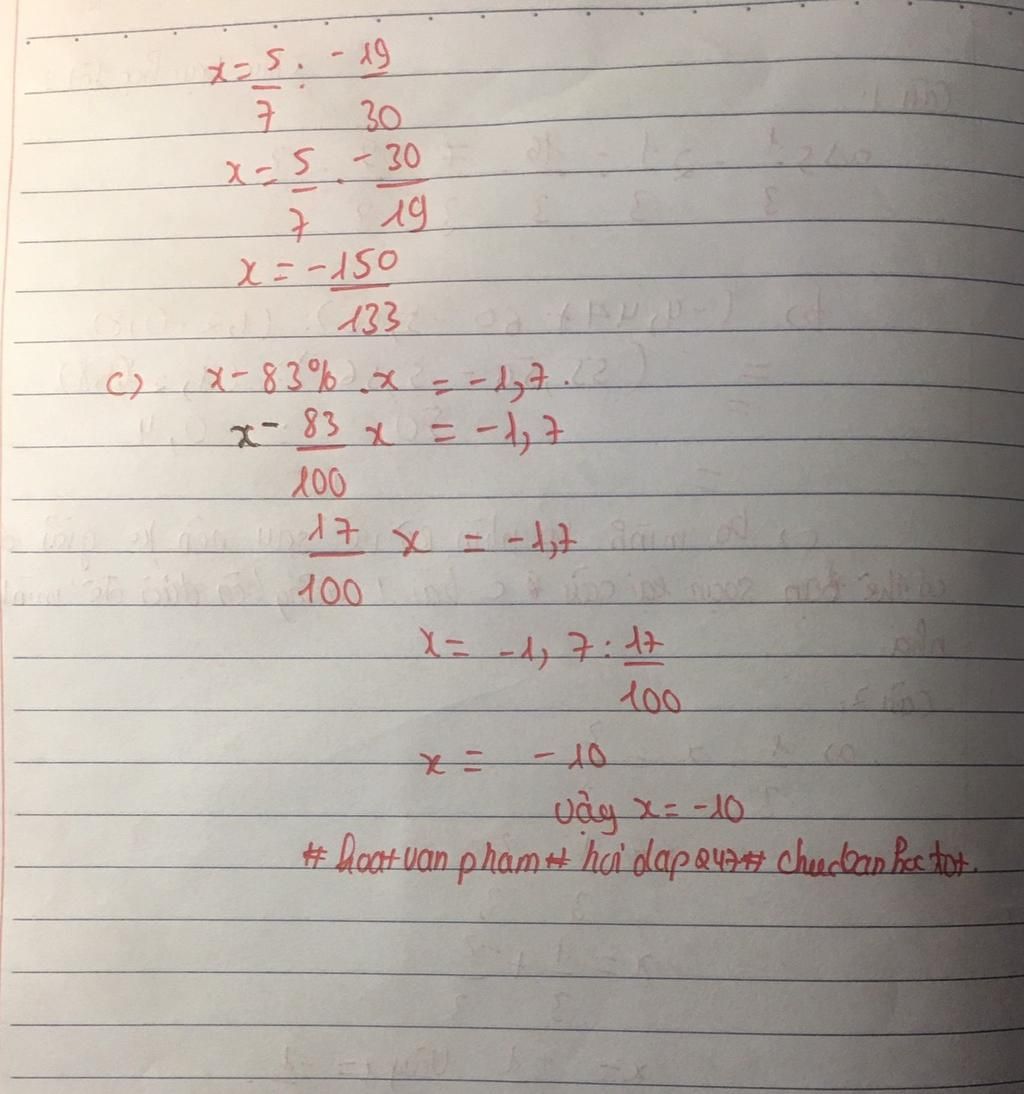 x = 5/7 : -19/30
x = 5/7 . -30/19
x = -150/133
c) x - 83% . x = -1,7.
x - 83/100 x = -1,7
17/100 x = -1,7
x = -1, 7 : 17/100
x = -10
Vậy x = -10
# hoidap247# chucbanhoctot.